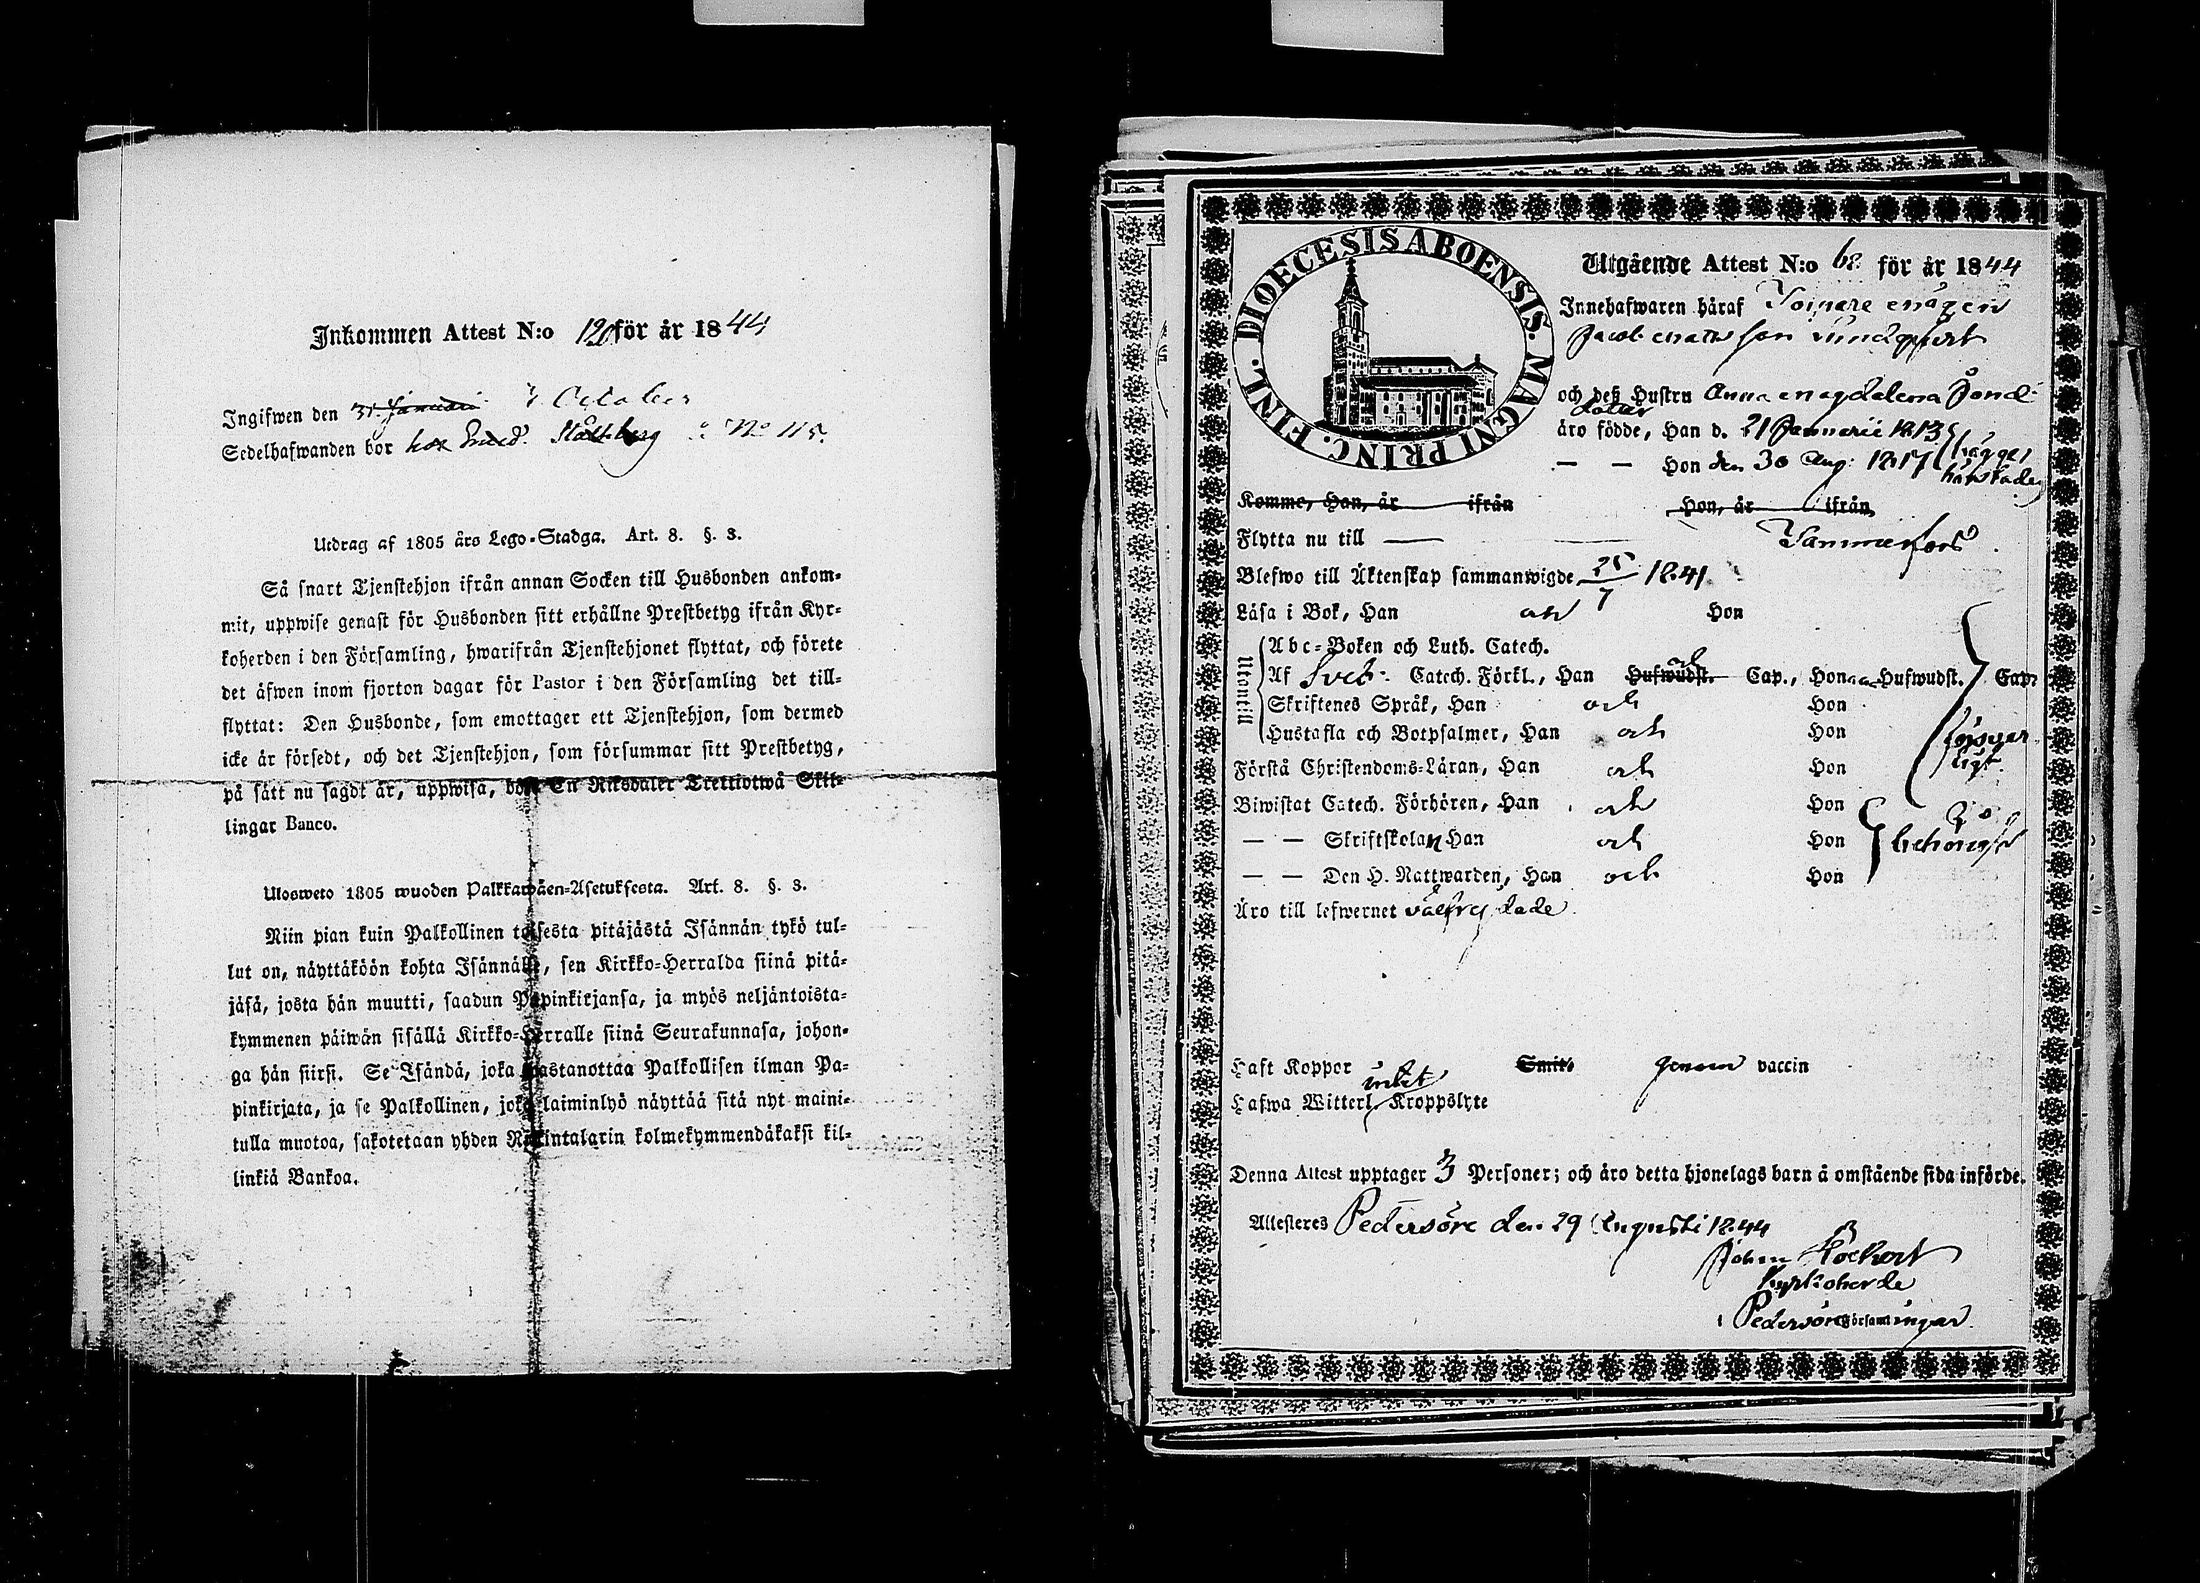 Inkommen Attest N:o 120 för år 1844
Ingifwen den 31 Januari 7 October
Sedelhafwanden bor hos Smed. Stålberg N:o 115.
Utdrag af 1805 års Lego-Stadga. Art. 8. §. 3.
Så snart Tjenstehjon ifrån annan Socken till Husbonden ankom-
mit, uppwise genast för Husbonden sitt erhållne Prestbetyg ifrån Kyr-
koherden i den Församling, hwarifrån Tjenstehjonet flyttat, och förete
det äfwen inom fjorton dagar för Pastor i den Församling det till-
flyttat: Den Husbonde, som emottager ett Tjenstehjon, som dermed
icke är försedt, och det Tjenstehjon, som försummar sitt Prestbetyg,
på sätt nu sagdt är, uppwisa, böte En Riksdaler Trettiotwå Skil-
lingar Banco.
Ulosweto 1805 wuoden Palkkawäen-Asetuksesta. Art. 8. §. 3.
Niin pian kuin Palkollinen toisesta pitäjästä Isännän tykö tul-
lut on, näyttäköön kohta Isännälle, sen Kirkko-Herralda siinä pitä-
jäsä, josta hän muutti, saadun Papinkirjansa, ja myös neljäntoista-
kymmenen päiwän sisällä Kirkko-Herralle siinä Seurakunnasa, johon-
ga hän siirsi. Se Isändä, joka wastanottaa Palkollisen ilman Pa-
pinkirjata, ja se Palkollinen, joka laiminlyö näyttää sitä nyt maini-
tulla muotoa, sakotetaan yhden Riikintalarin kolmekymmendäkaksi kil-
linkiä Bankoa.
DIOECESIS ABOENSIS. MAGNI PRINC. FINL.
Utgående Attest N:o 62 för år 1844
Innehafwaren häraf
Jacob Matts son Lundqvist
och deß Hustru Anna Magdalena Jons
dotter
äro födde, Han d. 21 Januarii 1813
— — Hon den 30 Aug: 1817 bägge
härstädes
Komme, Han, år ifrån Hon, år ifrån
Flytta nu till — Tammerfors
Blefwo till Äktenskap sammanwigde 25/7 1841
Läsa i Bok, Han och Hon
Utantill
Abc-Boken och Luth. Catech.
Af Sveb. Catech. Förkl., Han och Hufwudst. Cap., Hon Hufwudst. Cap.
Skriftenes Språk, Han och Hon
Hustafla och Botpsalmer, Han och Hon försvar
ligt.
Förstå Christendoms-Läran, Han och Hon
Biwistat Catech. Förhören, Han och Hon
— — Skriftskolan Han och Hon behörigt
— — Den H. Nattwarden, Han och Hon
Äro till lefwernet välfrejdade
Haft Koppor Smitt. genom vaccin
Hafwa Witterl. intet Kroppslyte
Denna Attest upptager 3 Personer; och äro detta hjonelags barn å omstående sida införde.
Attesteres Pedersöre den 29 Augusti 1844
Kyrkoherde
i Pedersöre Församlingar